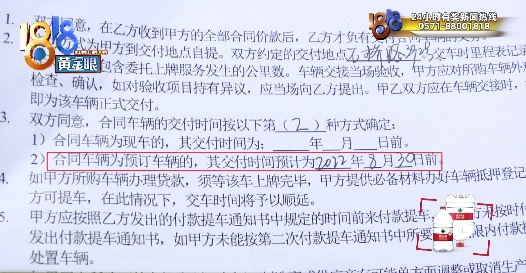 1818
黄金眼
24小时有奖新闻热线
0571-88001818
1. 双方同意，在乙方收到甲方的全部合同价款后，乙方才
2. 为甲方到交付地点自提。双方约定的交付地点
交车时里程表记录
包含委托上牌服务发生的公里数。车辆交接当场验收，甲方应对所购车辆外
检查、确认，如对验收项目持有异议，应当场向乙方提出。甲乙双方应在车辆交接时，
即为该车辆正式交付。
3. 双方同意，合同车辆的交付时间按以下第（2）种方式确定：
1）合同车辆为现车的，其交付时间为： 年 月 日前。
2）合同车辆为预订车辆的，其交付时间预计为2022年8月30日前
4. 如甲方所购车辆办理贷款，须等该车上牌完毕，甲方提供必备材料办好车辆抵押登记
方可提车，在此情况下，交车时将予以顺延。
5. 甲方应按照乙方发出的付款提车通知书中规定的时间前来付款提车，
按时付
发出付款提车通知书，如甲方未能按第二次付款提车通知书中所要
限内付款
处置车辆。